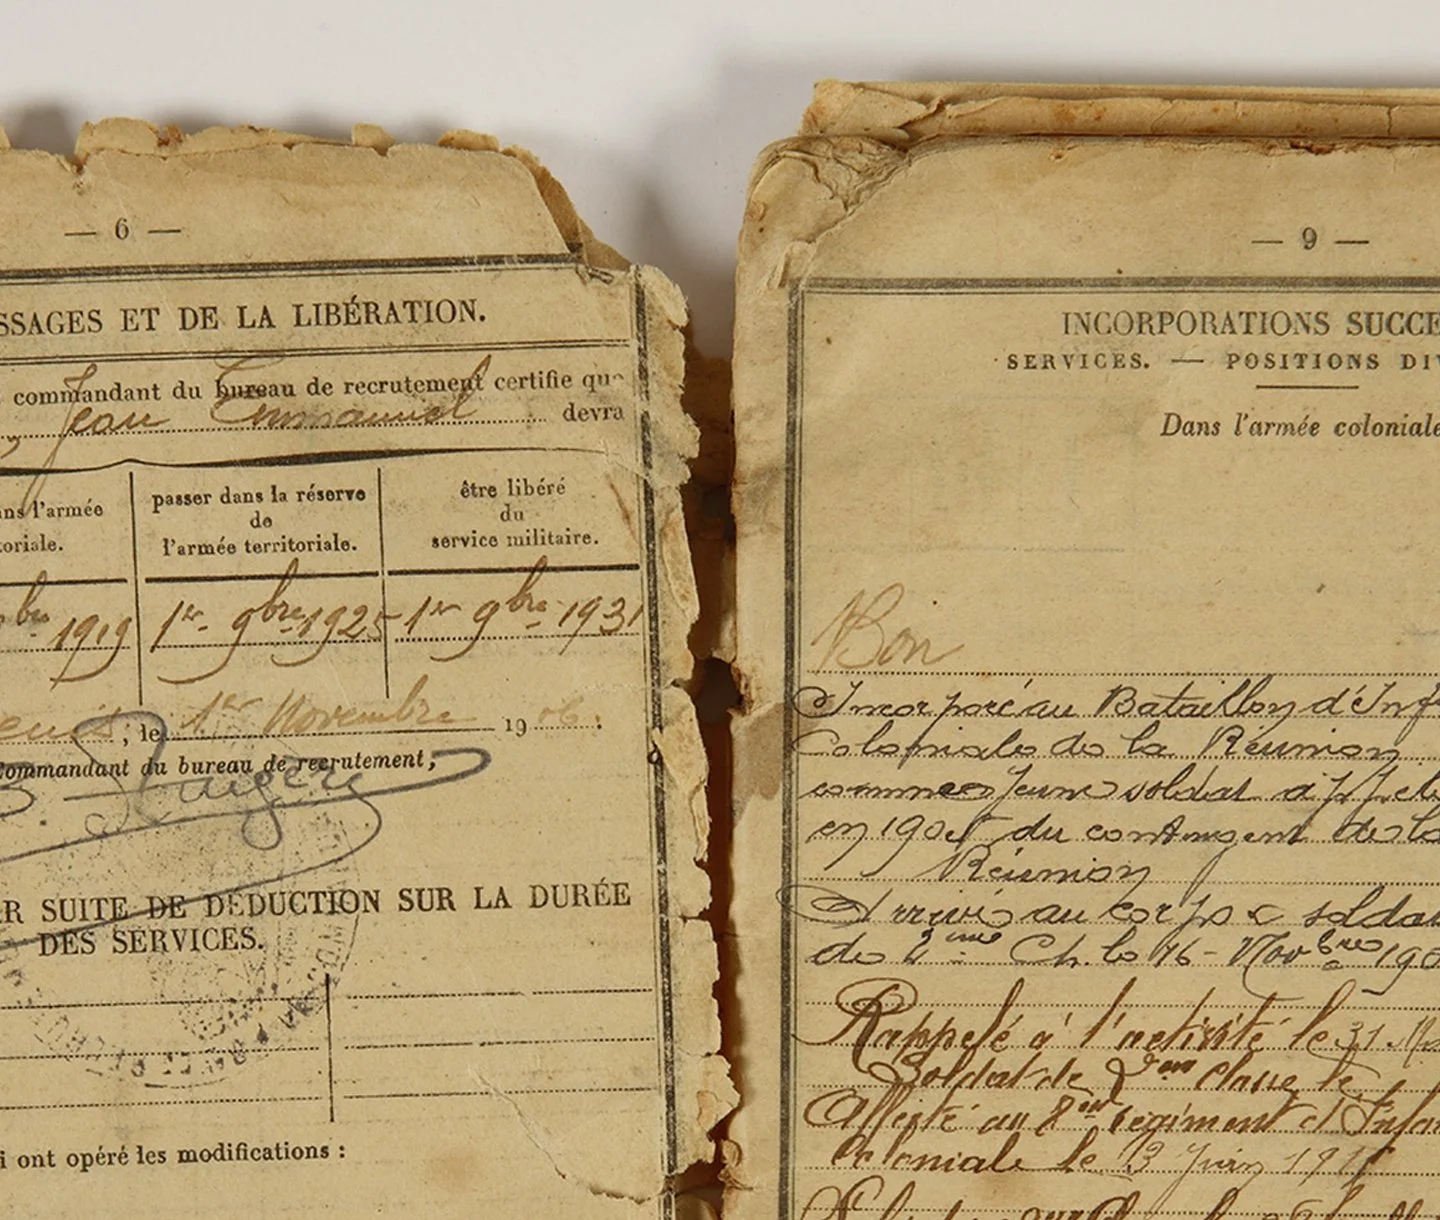 — 6 —
SSAGES ET DE LA LIBÉRATION.
commandant du bureau de recrutement certifie que
, Jean Emmanuel devra
ans l'armée
toriale.
passer dans la réserve
de
l'armée territoriale.
être libéré
du
service militaire.
bre 1919
1er 9bre 1925
1er 9bre 1931
enis, le 1er Novembre 1906.
Commandant du bureau de recrutement,
R SUITE DE DÉDUCTION SUR LA DURÉE
DES SERVICES.
i ont opéré les modifications :
— 9 —
INCORPORATIONS SUCCE
SERVICES. — POSITIONS DIV
Dans l'armée coloniale
Bon
Incorporé au Bataillon d'Inf
Coloniale de la Réunion
comme jeune soldat appelé
en 190 du contingent de la
Réunion
Arrivé au corps & soldat
de 2ème Cl. le 16 Novbre 190
Rappelé à l'activité le 31
Soldat de 2eme classe le
Affecté au 8eme régiment d'Infan
Coloniale le 3 Juin 191